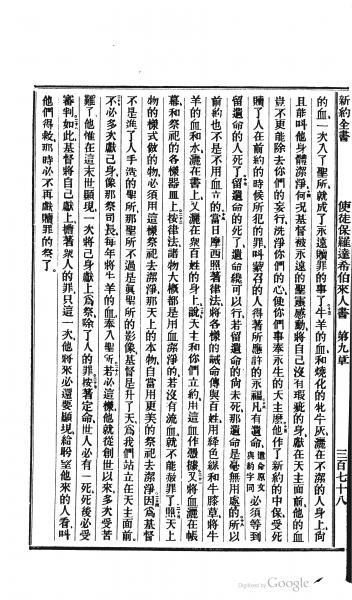 新約全書　使徒保羅達希伯來人書　第九章　三百七十八
的血一次入了聖所就成了永遠贖罪的事了牛羊的血和燒化的牝牛灰灑在不潔的人身上尚
且能叫他身體潔淨何況基督被永遠的聖靈感動將自己沒有瑕疵的身獻在天主面前他的血
豈不更能除去你們的妄行洗淨你們的心使你們事奉永生的天主麽他作了新約的中保受死
贖了人在前約的時候所犯的罪叫蒙召的人得著所應許的永福凡有遺命遺命原文與約字同必須等到
留遺命的人死了留遺命的死了遺命纔可以行若留遺命的尚未死那遺命是毫無用處的所以
前約也不是不用血立的當日摩西照著律法將各樣的誡命傳與百姓用絳色絨和牛膝草將牛
羊的血和水灑在書上又灑在衆百姓的身上說天主和你們立約用這血作憑據又將血灑在帳
幕和祭祀的各樣器皿上按律法諸物大槪都是用血潔淨的若沒有流血就不能赦罪了照天上
物的樣式做的物必須用這樣祭祀去潔淨那天上的本物自當用更美的祭祀去潔淨因爲基督
不是進了人手造的聖所那聖所不過是眞聖所的影像基督是升了天爲我們站立在天主面前
不必多次獻己身像那祭司長每年將牛羊的血奉入聖所若必這樣他就從創世以來多次受苦
難了他惟在這末世顯現一次將己身獻上爲祭除了人的罪按著定命世人必有一死死後必受
審判如此基督將自己獻上擔著衆人的罪只這一次他將來必還要顯現給盼望他來的人看叫
他們得救那時必不再獻贖罪的祭了
Digitized by Google